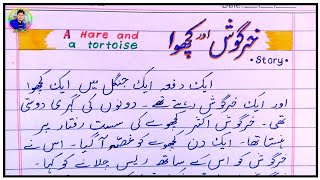 Date
A Hare and a tortoise
خرگوش اور کچھوا
Story
ایک دفعہ ایک جنگل میں ایک کچھوا
اور ایک خرگوش رہتے تھے۔ دونوں کی گہری دوستی
تھی۔ خرگوش اکثر کچھوے کی سست رفتار پر
ہنستا تھا۔ ایک دن کچھوے کو غصہ آگیا۔ اس نے
خرگوش کو اس کے ساتھ ریس چلانے کو کہا۔